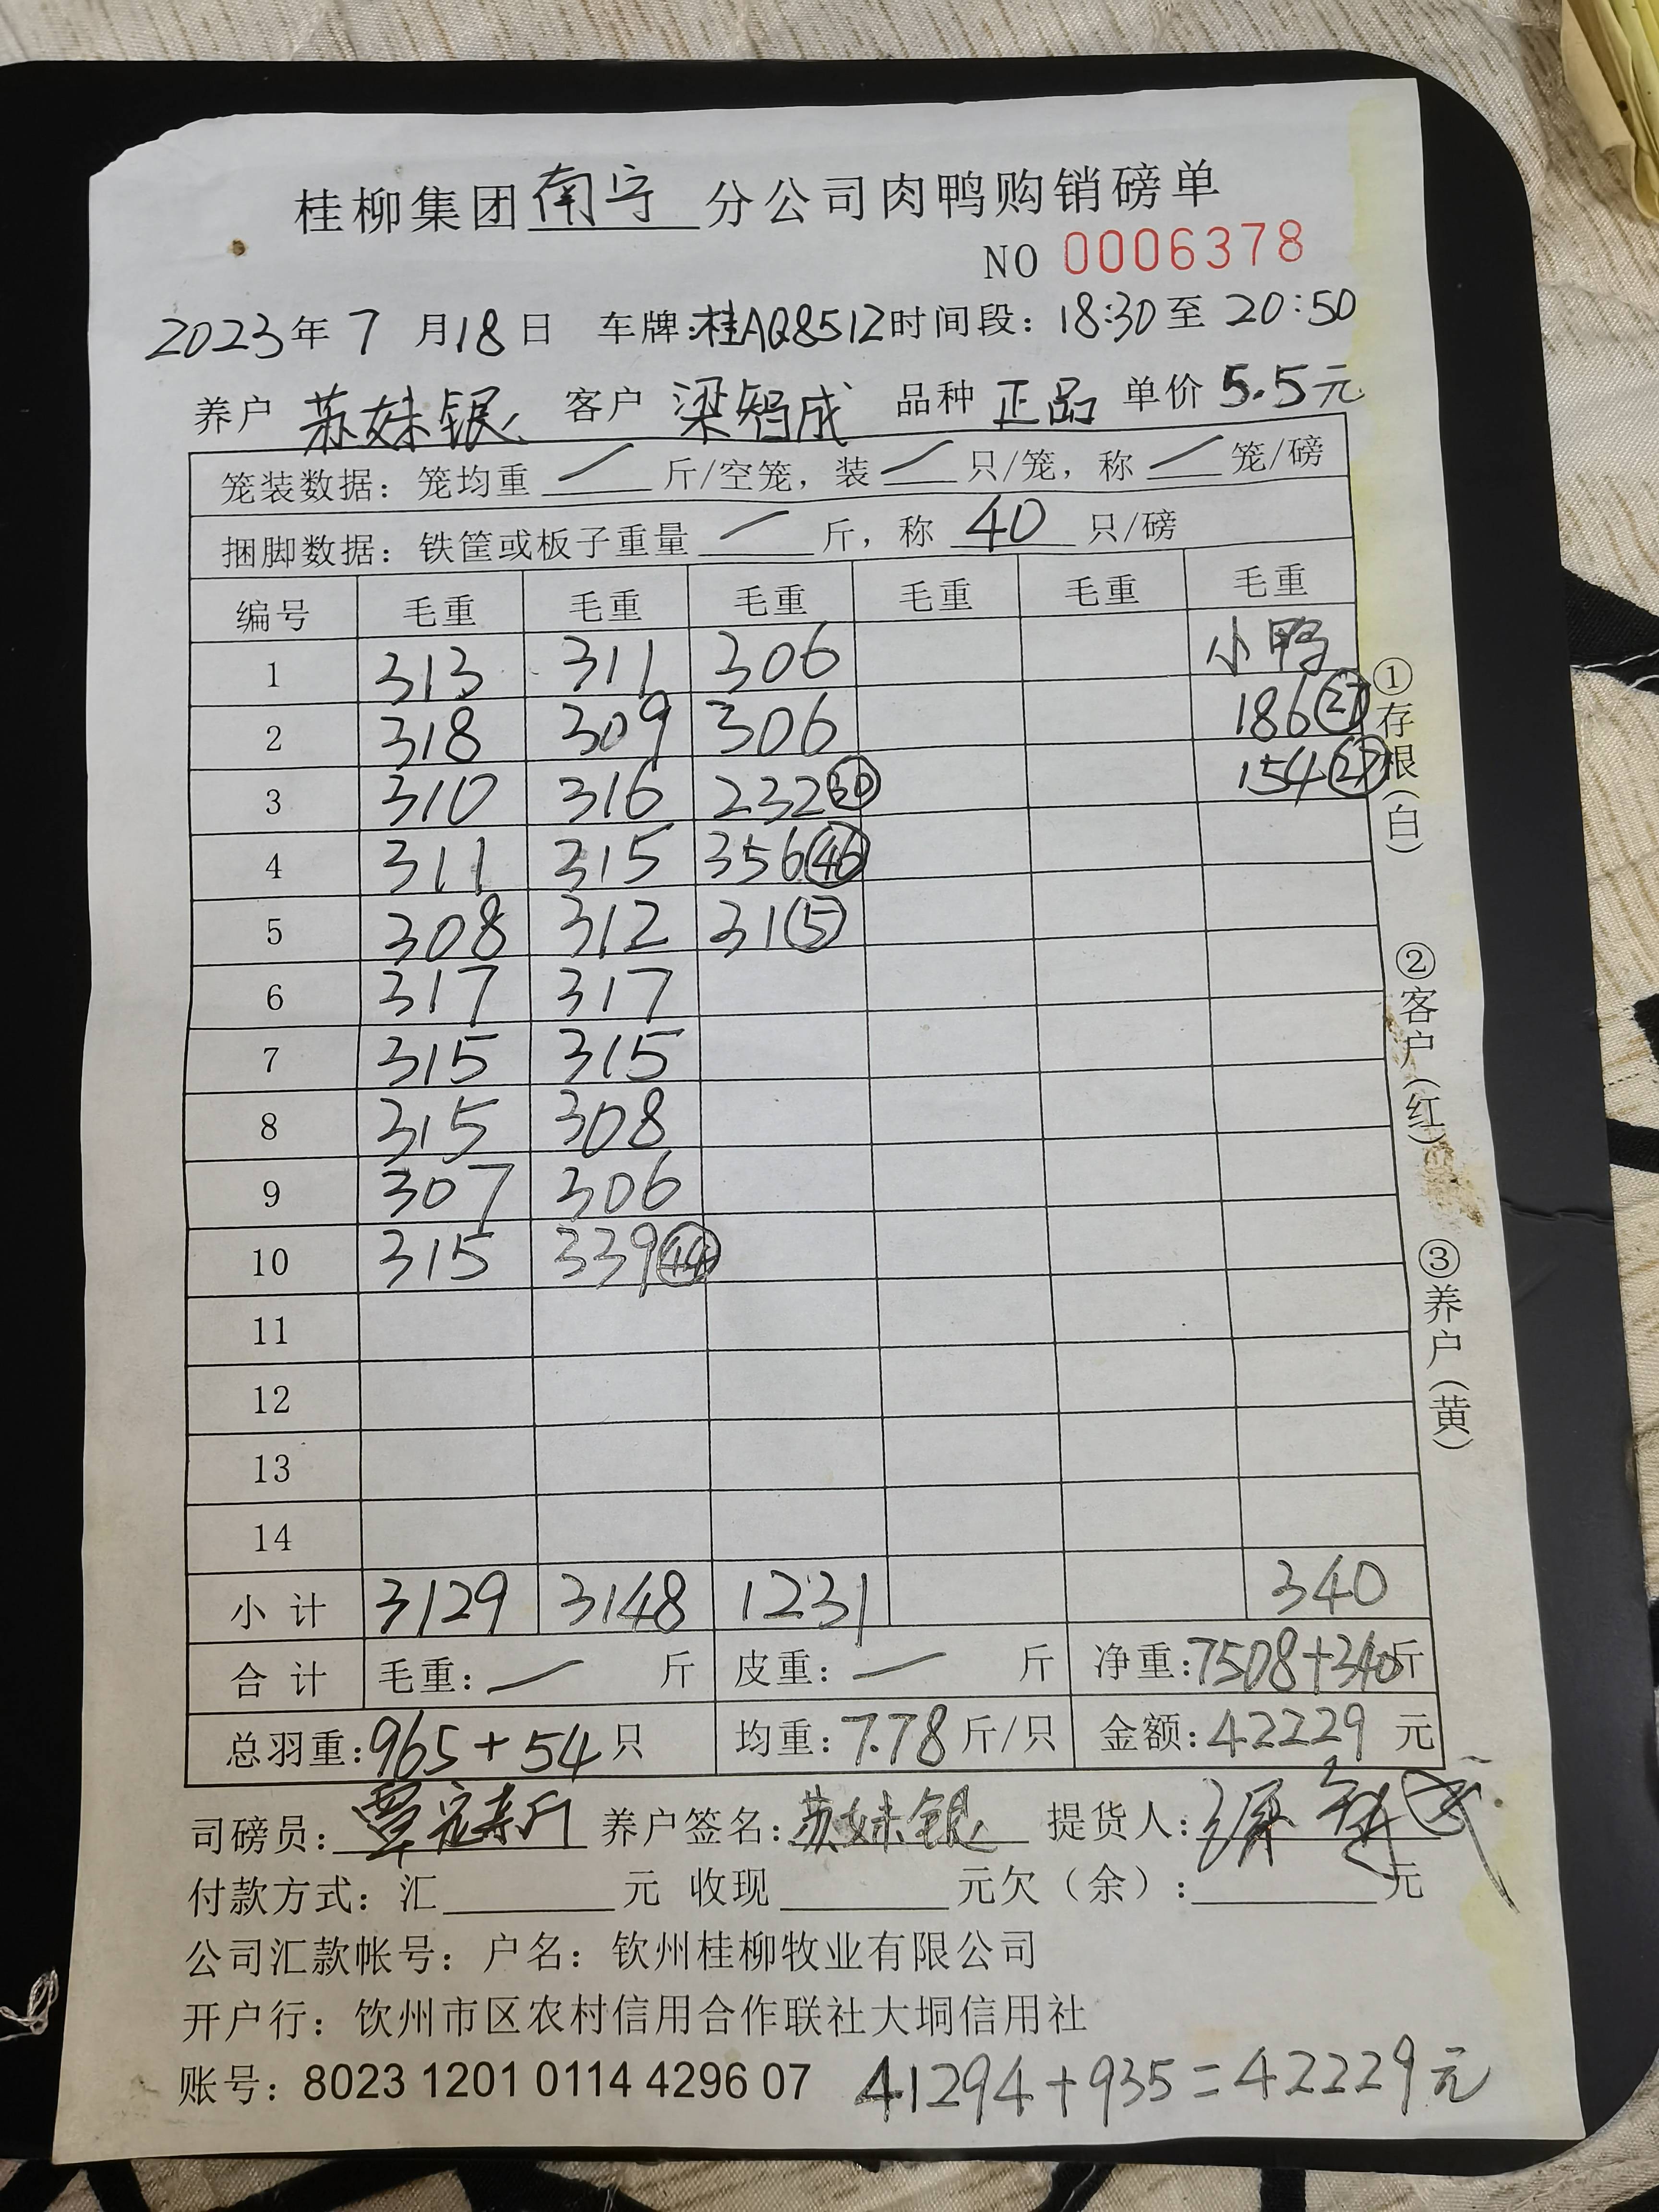 桂柳集团南宁分公司肉鸭购销磅单
NO 0006378
2023年7月18日 车牌:桂AQ8512 时间段:18:30至20:50
养户 苏妹银 客户 梁智成 品种 正品 单价 5.5元
笼装数据:笼均重 / 斤/空笼,装 / 只/笼,称 / 笼/磅
捆脚数据:铁筐或板子重量 / 斤,称 40 只/磅
编号 毛重 毛重 毛重 毛重 毛重 毛重
1 313 311 306 小鸭
2 318 309 306 186 (27)
3 310 316 232 (30) 154 (27)
4 311 315 356 (46)
5 308 312 31 (5)
6 317 317
7 315 315
8 315 308
9 307 306
10 315 339 (44)
11
12
13
14
小计 3129 3148 1231 340
合计 毛重:一 斤 皮重:一 斤 净重:7508+340斤
总羽重:965+54只 均重:7.78斤/只 金额:42229元
司磅员: 养户签名:苏妹银 提货人:
付款方式:汇 元 收现 元欠(余): 元
公司汇款帐号:户名:钦州桂柳牧业有限公司
开户行:饮州市区农村信用合作联社大垌信用社
账号:8023 1201 0114 4296 07 41294+935=42229元
①存根(白)
②客户(红)
③养户(黄)